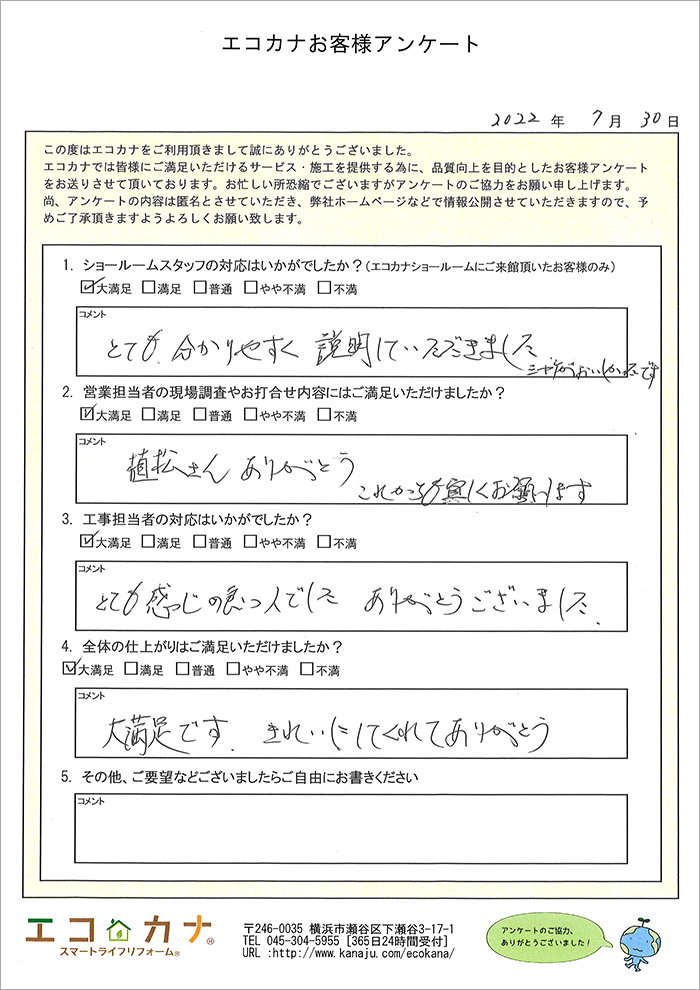 エコカナお客様アンケート
2022 年 7 月 30 日
この度はエコカナをご利用頂きまして誠にありがとうございました。
エコカナでは皆様にご満足いただけるサービス・施工を提供する為に、品質向上を目的としたお客様アンケート
をお送りさせて頂いております。お忙しい所恐縮でございますがアンケートのご協力をお願い申し上げます。
尚、アンケートの内容は匿名とさせていただき、弊社ホームページなどで情報公開させていただきますので、予
めご了承頂きますようよろしくお願い致します。
1. ショールームスタッフの対応はいかがでしたか？(エコカナショールームにご来館頂いたお客様のみ)
☑大満足 □満足 □普通 □やや不満 □不満
コメント
とても分かりやすく 説明していただきました
2. 営業担当者の現場調査やお打合せ内容にはご満足いただけましたか？
☑大満足 □満足 □普通 □やや不満 □不満
コメント
植松さん ありがとう
これからも宜しくお願いします
3. 工事担当者の対応はいかがでしたか？
☑大満足 □満足 □普通 □やや不満 □不満
コメント
とても感じの良い人でした ありがとうございました.
4. 全体の仕上がりはご満足いただけましたか？
☑大満足 □満足 □普通 □やや不満 □不満
コメント
大満足です. きれいにしてくれてありがとう
5. その他、ご要望などございましたらご自由にお書きください
コメント
エコカナ®
スマートライフリフォーム®
〒246-0035 横浜市瀬谷区下瀬谷3-17-1
TEL 045-304-5955 [365日24時間受付]
URL :http://www.kanaju.com/ecokana/
アンケートのご協力、
ありがとうございました！